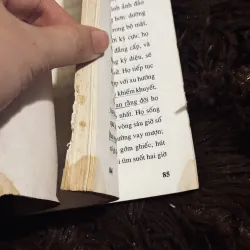 ến ảnh đảo
hơn: đường
trong bộ mặt,
kỳ cực, họ
đẳng cấp, và
kỳ diệu, sẽ
Họ tiếp tục
với xu hướng
khiếm khuyết,
an rằng đời họ
nhất. Họ sống
vòng sáu giờ số
tưởng vay mượn;
gớm ghiếc, hút
tìm suốt hai giờ
85